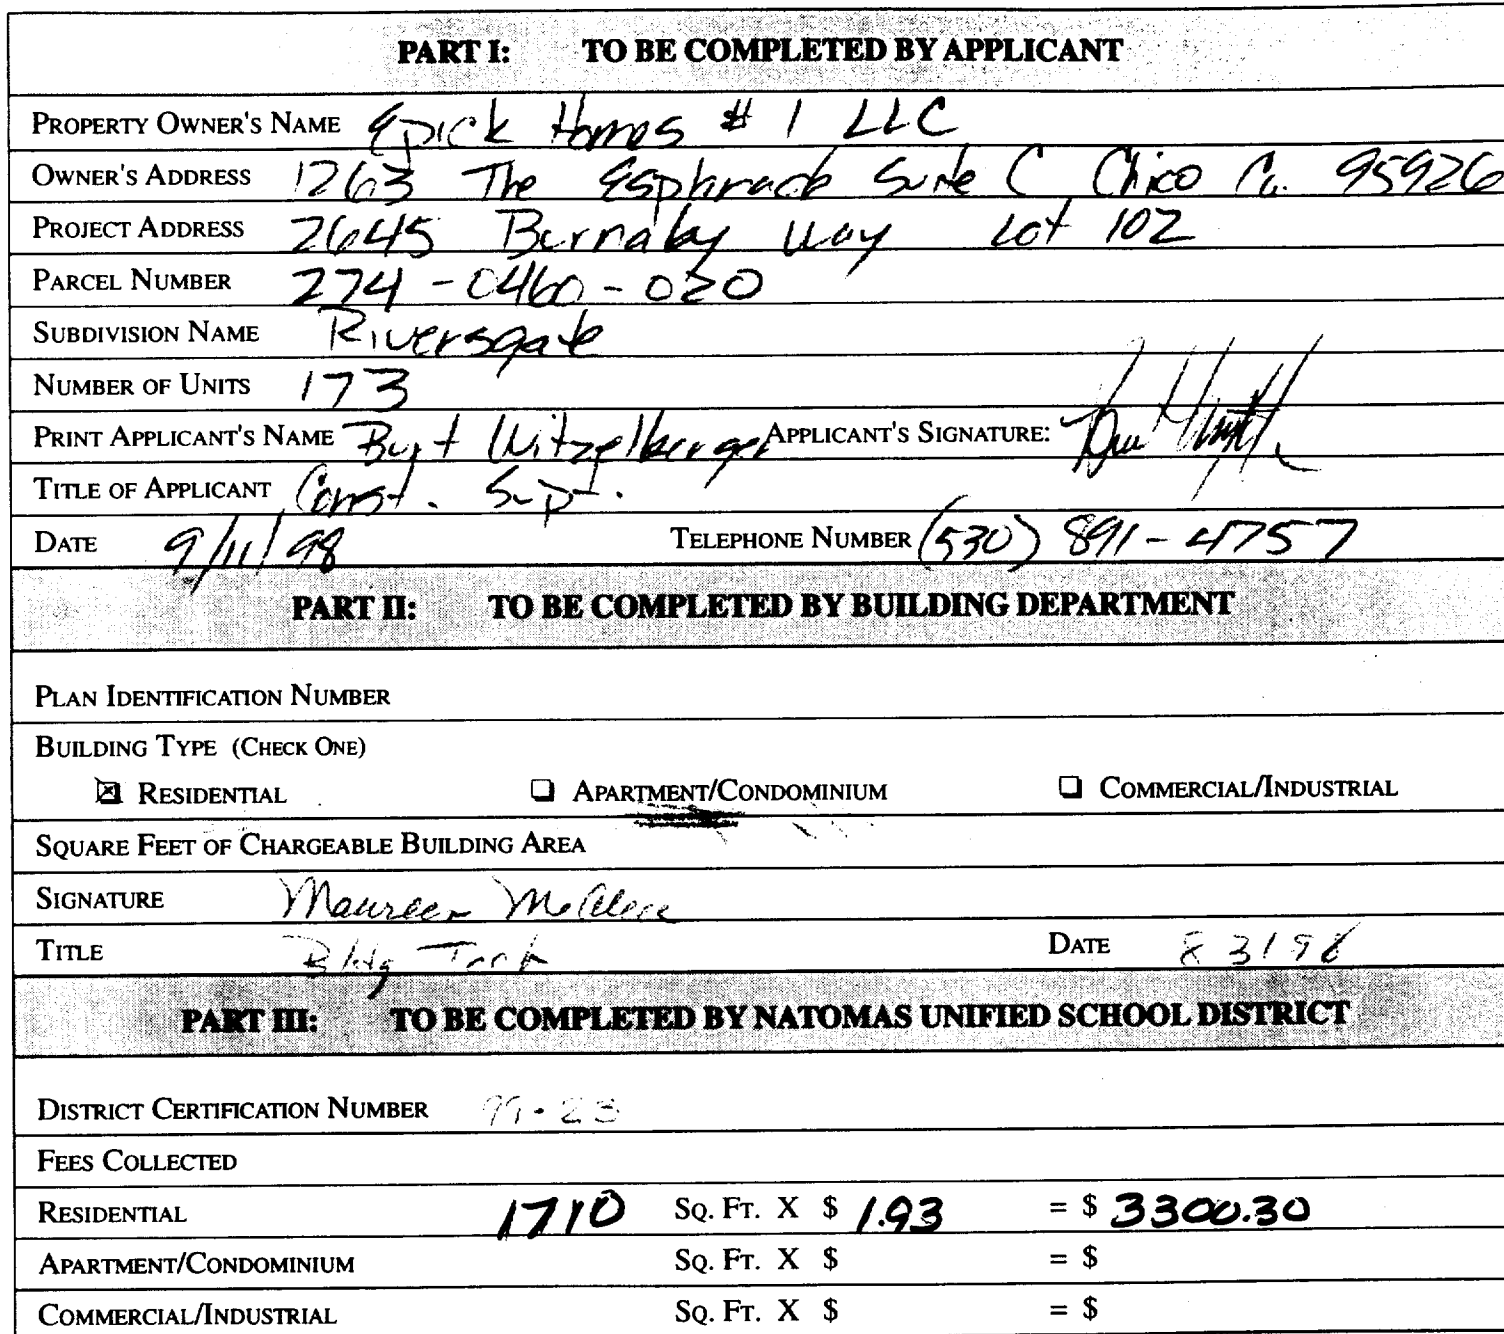 PART I: TO BE COMPLETED BY APPLICANT
PROPERTY OWNER'S NAME Epick Homes # 1 LLC
OWNER'S ADDRESS 1263 The Esplanade Suite C Chico Ca. 95926
PROJECT ADDRESS 2645 Burnaby Way Lot 102
PARCEL NUMBER 274-0460-020
SUBDIVISION NAME Riversgate
NUMBER OF UNITS 173
PRINT APPLICANT'S NAME Burt Witzelberger APPLICANT'S SIGNATURE:
TITLE OF APPLICANT Const. Supt.
DATE 9/11/98 TELEPHONE NUMBER (530) 891-4757
PART II: TO BE COMPLETED BY BUILDING DEPARTMENT
PLAN IDENTIFICATION NUMBER
BUILDING TYPE (CHECK ONE)
RESIDENTIAL APARTMENT/CONDOMINIUM COMMERCIAL/INDUSTRIAL
SQUARE FEET OF CHARGEABLE BUILDING AREA
SIGNATURE Maureen
TITLE Bldg Tech DATE 8 31 98
PART III: TO BE COMPLETED BY NATOMAS UNIFIED SCHOOL DISTRICT
DISTRICT CERTIFICATION NUMBER 99-23
FEES COLLECTED
RESIDENTIAL 1710 SQ. FT. X $ 1.93 = $ 3300.30
APARTMENT/CONDOMINIUM SQ. FT. X $ = $
COMMERCIAL/INDUSTRIAL SQ. FT. X $ = $